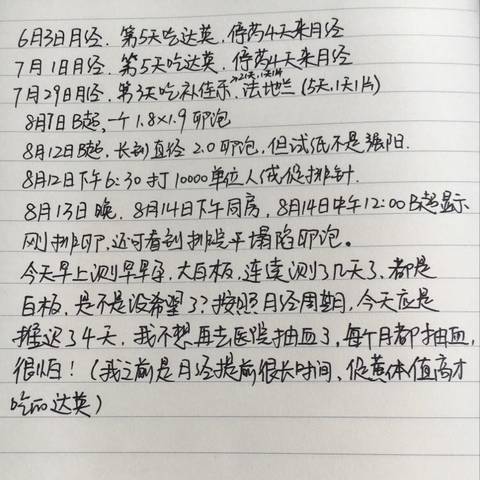 6月3日月经. 第5天吃达英, 停药4天来月经
7月1日月经. 第5天吃达英. 停药4天来月经
7月29日月经. 第3天吃补佳乐. 法地兰 (5天,1天1片)
8月7日B超, 一个1.8×1.9卵泡
8月12日B超, 长到直径2.0卵泡, 但试纸不是强阳.
8月12日下午6:30打10000单位人绒促排针.
8月13日晚, 8月14日下午同房, 8月14日中午12:00B超显示
刚排卵, 还可看到排完平塌陷卵泡。
今天早上测早早孕, 大白板, 连续测了几天了, 都是
白板, 是不是没希望了? 按照月经周期, 今天应是
推迟了4天, 我不想再去医院抽血了, 每个月都抽血,
很怕! (我之前是月经提前很长时间、促黄体值高才
吃的达英)